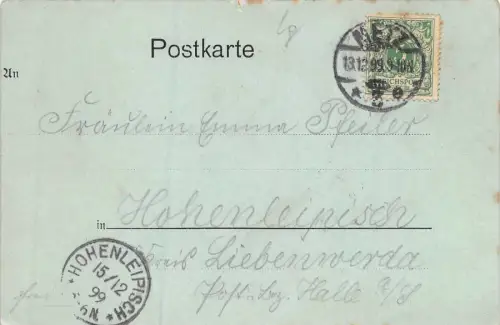 Postkarte
METZ
13.12.99.9-10V
REICHSPOST
An
Fräulein Emma Pfeiler
in Hohenleipisch
Kreis Liebenwerda
Post-Bez. Halle a/S
HOHENLEIPISCH
15/12
99